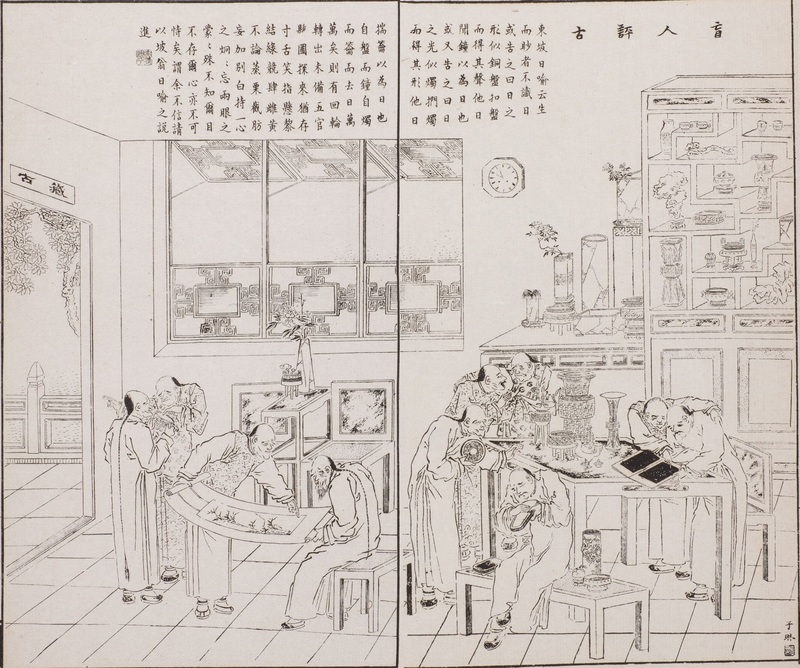 盲人評古
東坡日喻云生
而眇者不識日
或告之曰日之
形似銅盤扣盤
而得其聲他日
聞鐘以為日也
或又告之曰日
之光似燭捫燭
而得其形他日
揣籥以為日也
自盤而鐘自燭
而籥而去日萬
萬矣則有回輪
轉出未備五官
圖探來猶存
寸舌笑指懸黎
結綠競肆雌黃
不論蒸栗截肪
妄加別白持一心
之炯〻忘兩眼之
蒙〻殊不知爾目
不存爾心亦不可
恃矣謂余不信請
以坡翁日喻之說
進
藏古
子琳